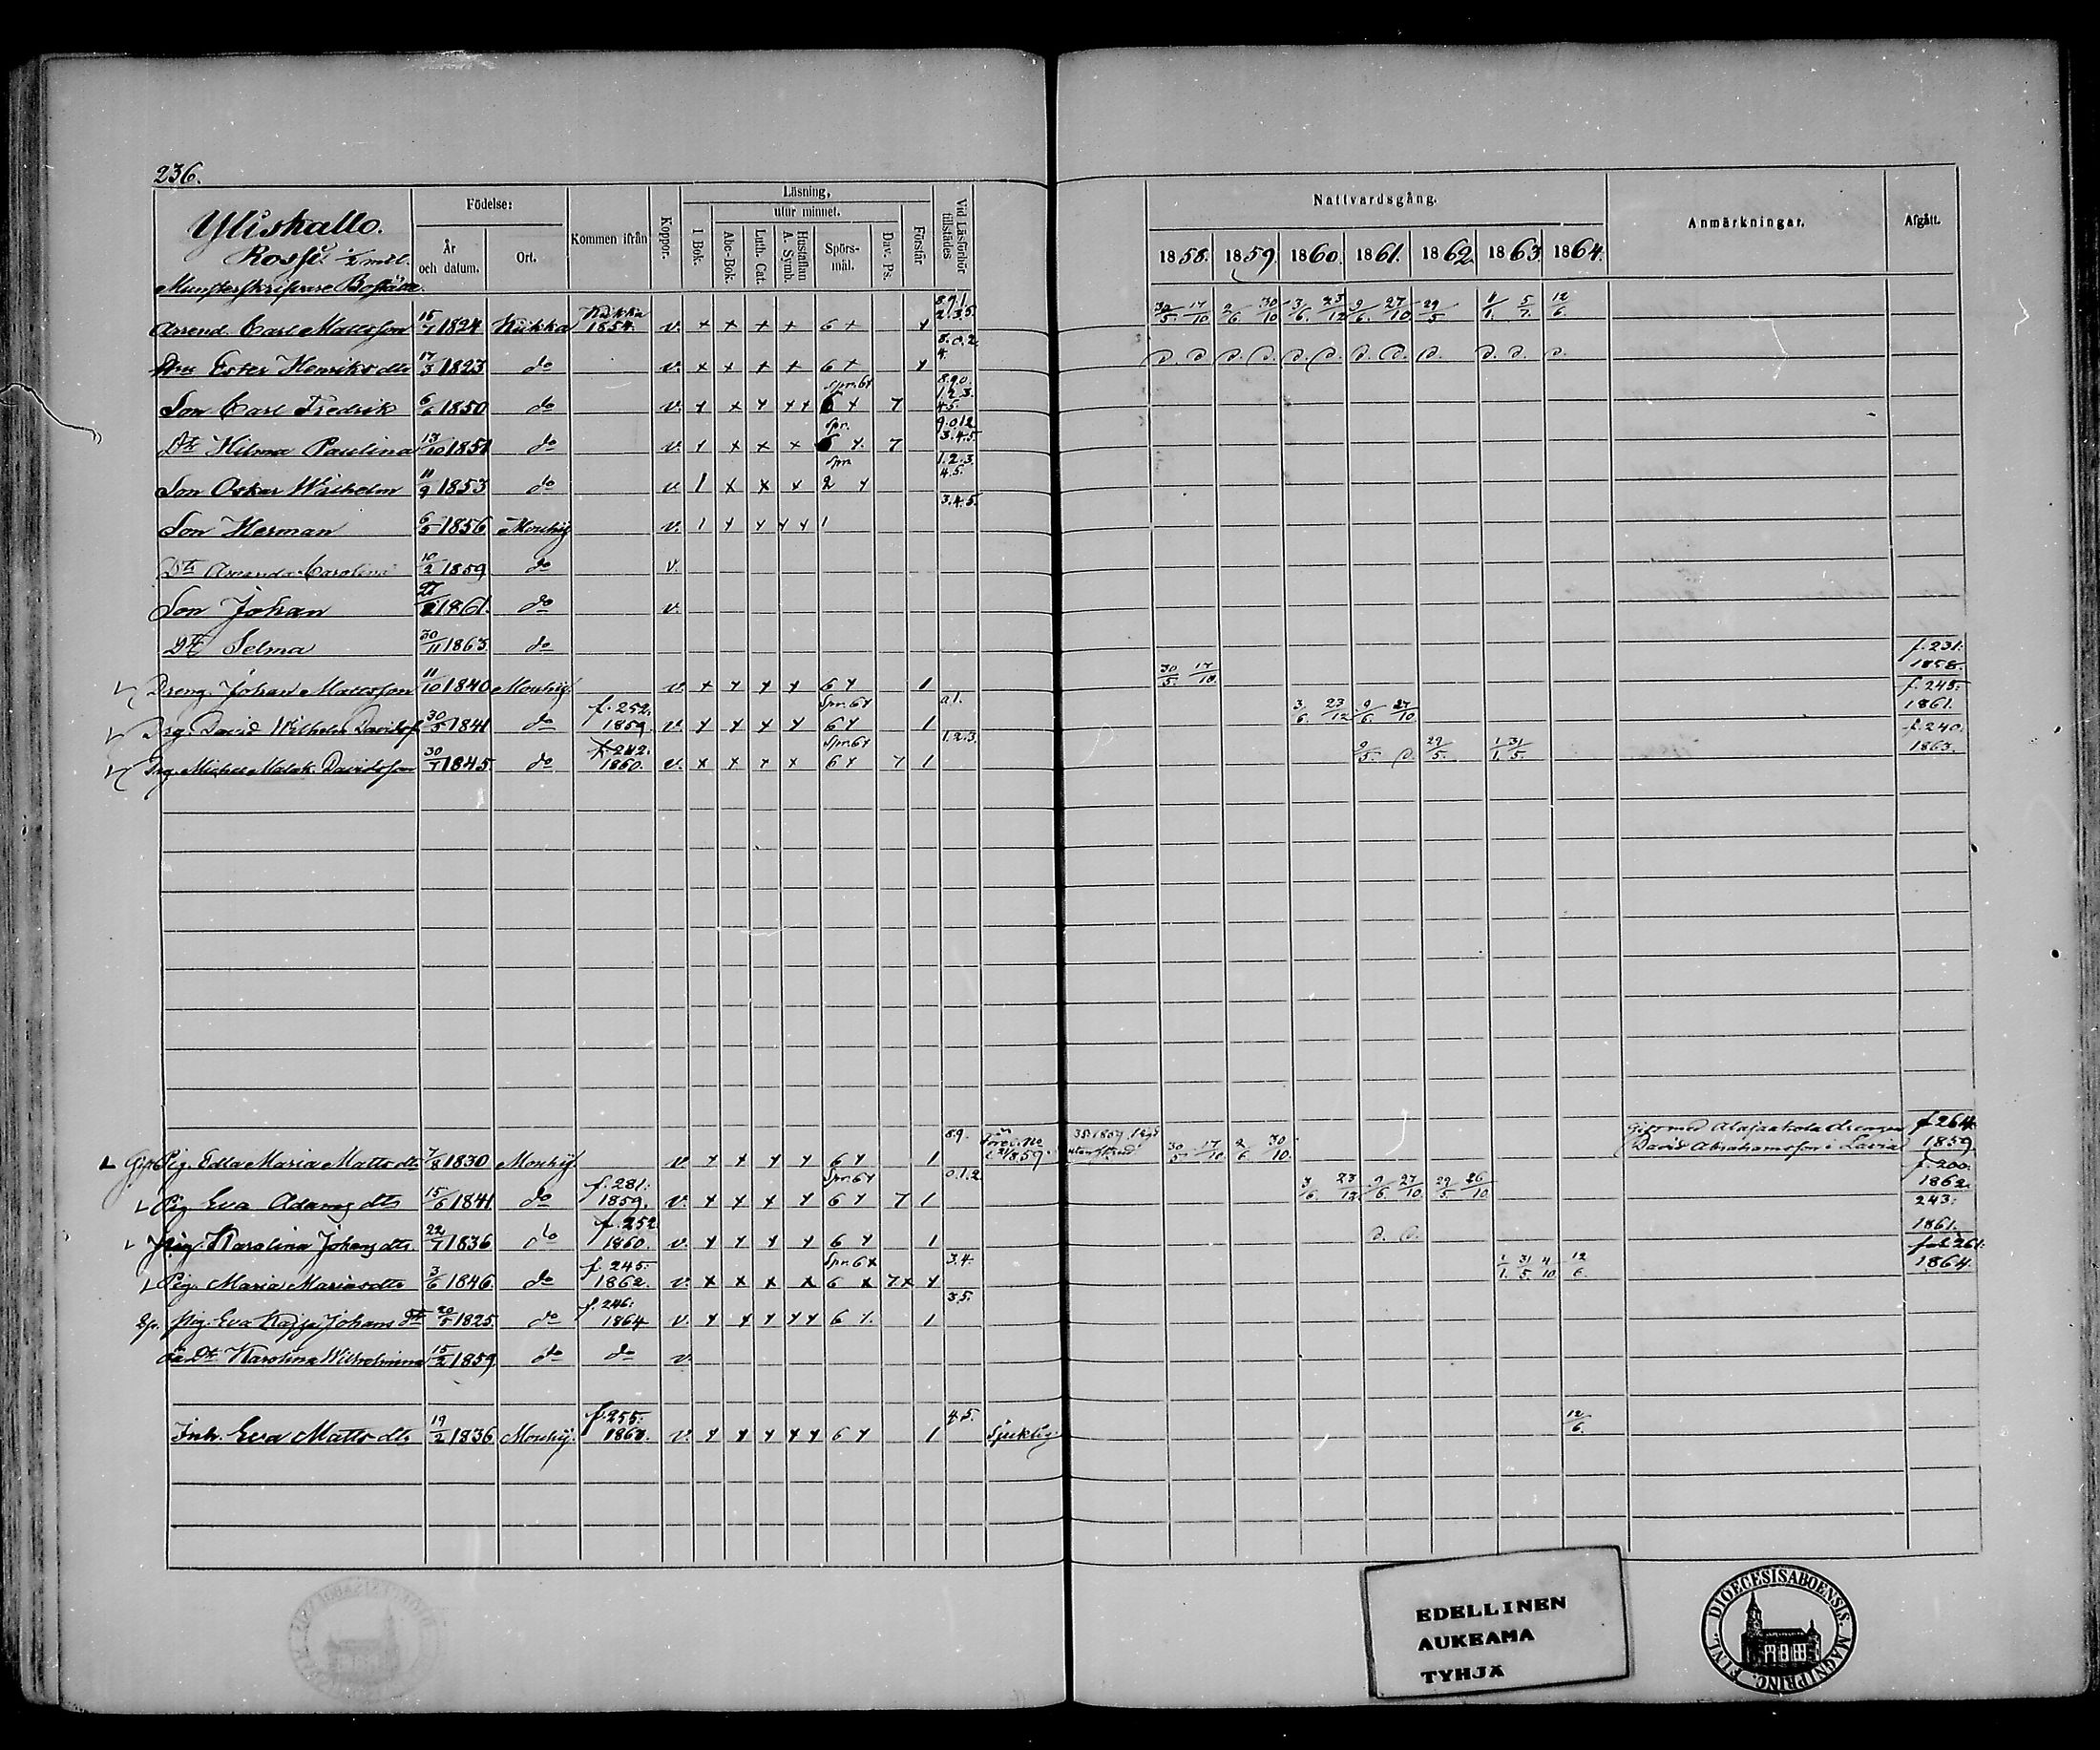 236.
Yliskallo.
Rossi. 1/2 mtl.
Munsterskrifvare Boställe.
Födelse:
År och datum.
Ort.
Kommen ifrån
Koppor.
Läsning,
utur minnet.
I Bok.
Abc-Bok.
Luth. Cat.
Hustaflan A. Symb.
Spörs-mål.
Dav. Ps.
Förstår
Vid Läsförhör tillstädes
Nattvardsgång.
1858. 1859. 1860. 1861. 1862. 1863. 1864.
Anmärkningar.
Afgått.
Arrend. Carl Mattsson 15/1 1824 Kiikka Kiikka 1854. v. + + + + 6 + + 8.9.1. 2.3.5. 30/5. 17/10 2/6 30/10 3/6. 23/12 9/6. 27/10 29/5 1/1. 5/7. 12/6.
Hru Ester Henriksdtr 17/3 1823 do v. + + + + 6 + + 8.0.2. 4. D. D. D. D. D. D. D. D. D. D. D. D.
Son Carl Fredrik 6/6 1850 do v. + + + + + Spr. 6+ 6 + 7 8.9.0. 1.2.3. 4.5.
Dtr Hilma Paulina 13/10 1851 do v. + + + + Spr. 6 +. 7 9.0.1.2. 3.4.5.
Son Oskar Wilhelm 11/9 1853 do v. 1 + + + Spr. 2 + 1.2.3. 4.5.
Son Herman 6/5 1856 Mouhij. v. 1 + + + + 1 3.4.5.
Dtr Amanda Carolina 10/2 1859 do v.
Son Johan 1861. do v.
Dtr Selma 30/11 1863. do
Dreng. Johan Mattsson 11/10 1840 Mouhij. v. + + + + 6 + 1 30/5. 17/10. f. 231: 1858.
Drg David Wilhelm Davidsf. 30/5 1841 do f. 252. 1859. v. + + + + Spr. 6+ 6+ 1 0.1. 3/6. 23/12 9/6 27/10. f. 245: 1861.
Drg. Michel Malak. Davidsson 30/1 1845 do f. 242. 1860. v. + + + + Spr. 6+ 6+ 7 1 1.2.3. 9/5. D. 29/5. 1/1. 31/5. f. 240. 1863.
Gift Pig. Edla Maria Mattsdtr 7/8 1830 Mouhij. v + + + + 6+ 1 8.9. 30/5 17/10. 2/6 30/10. Gift med Alajaakola drengen David Abrahamsson i Lavia f. 264. 1859.
Pig Eva Adamsdtr 15/6 1841 do f. 281: 1859. v. + + + + Spr. 6+ 6 + 7 1 0.1.2. 3/6. 23/12 9/6. 27/10 29/5 26/10 f. 200: 1862.
Pig. Karolina Johansdtr. 22/1 1836 do f. 252 1860. v. + + + + 6 + 1 D. D. 243: 1861.
Pig. Maria Mariasdtr 3/6 1846. do f. 245. 1862. v. + + + + Spr. 6+ 6 + 7+ + 3.4. 1/1. 31/5 4/10 12/6. fol. 261: 1864.
Sp. Pig. Eva Kajsa Johans dtr 20/5 1825. do f. 246: 1864 v. + + + + + 6 +. 1 3.5.
oä. Dtr. Karolina Wilhelmina 15/2 1859 do do v.
Inh. Eva Mattsdtr 19/2 1836 Mouhij. f. 255: v. + + + + + 6 + 1 4.5. Sjuklig. 12/6.
EDELLINEN
AUKEAMA
TYHJÄ
DIOECESIS ABOENSIS. MAGNI PRINC. FINL.